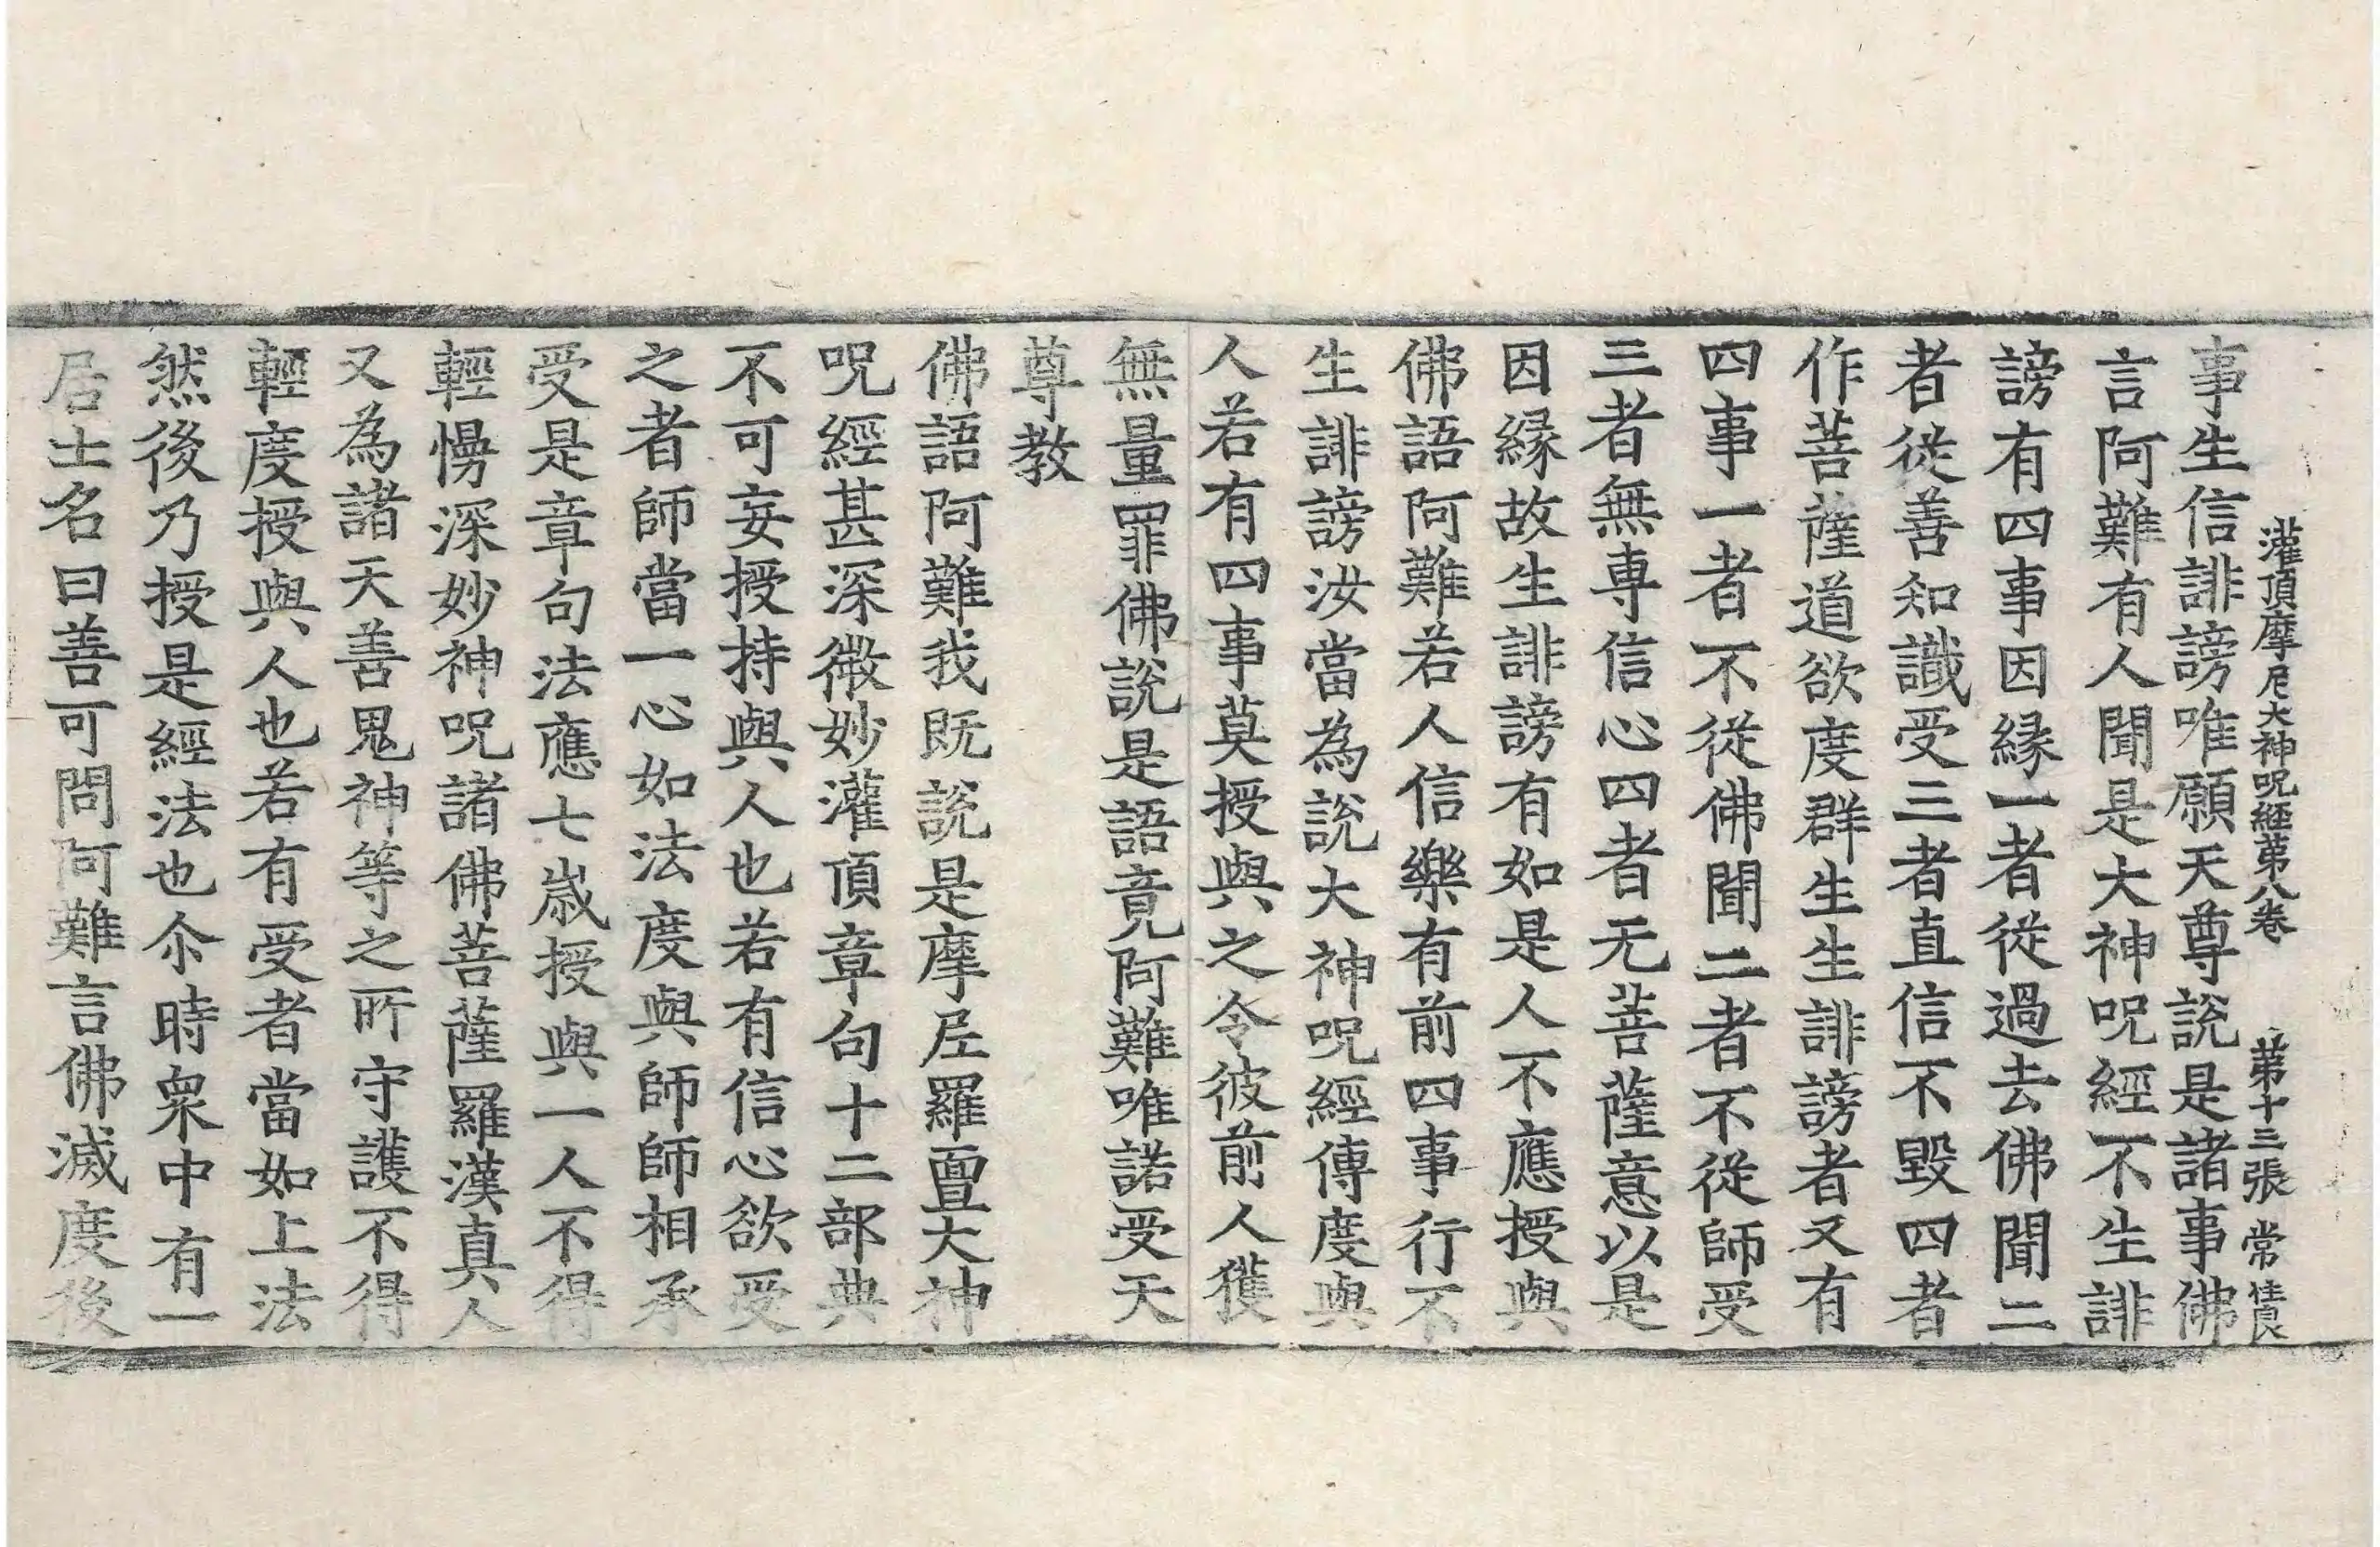 灌頂摩尼大神呪経苐八巻　苐十三張　常
事生信誹謗唯願天尊說是諸事佛
言阿難有人聞是大神呪經不生誹
謗有四事因縁一者從過去佛聞二
者從善知識受三者直信不毀四者
作菩薩道欲度群生生誹謗者又有
四事一者不從佛聞二者不從師受
三者無專信心四者无菩薩意以是
因縁故生誹謗有如是人不應授與
佛語阿難若人信樂有前四事行不
生誹謗汝當為說大神呪經傳度與
人若有四事莫授與之令彼前人獲
無量罪佛說是語竟阿難唯諾受天
尊教
佛語阿難我既說是摩尼羅亶大神
呪經甚深微妙灌頂章句十二部典
不可妄授持與人也若有信心欲受
之者師當一心如法度與師師相承
受是章句法應七歲授與一人不得
輕慢深妙神呪諸佛菩薩羅漢真人
又為諸天善鬼神等之所守護不得
輕度授與人也若有受者當如上法
然後乃授是經法也尒時衆中有一
居士名曰善可問阿難言佛滅度後